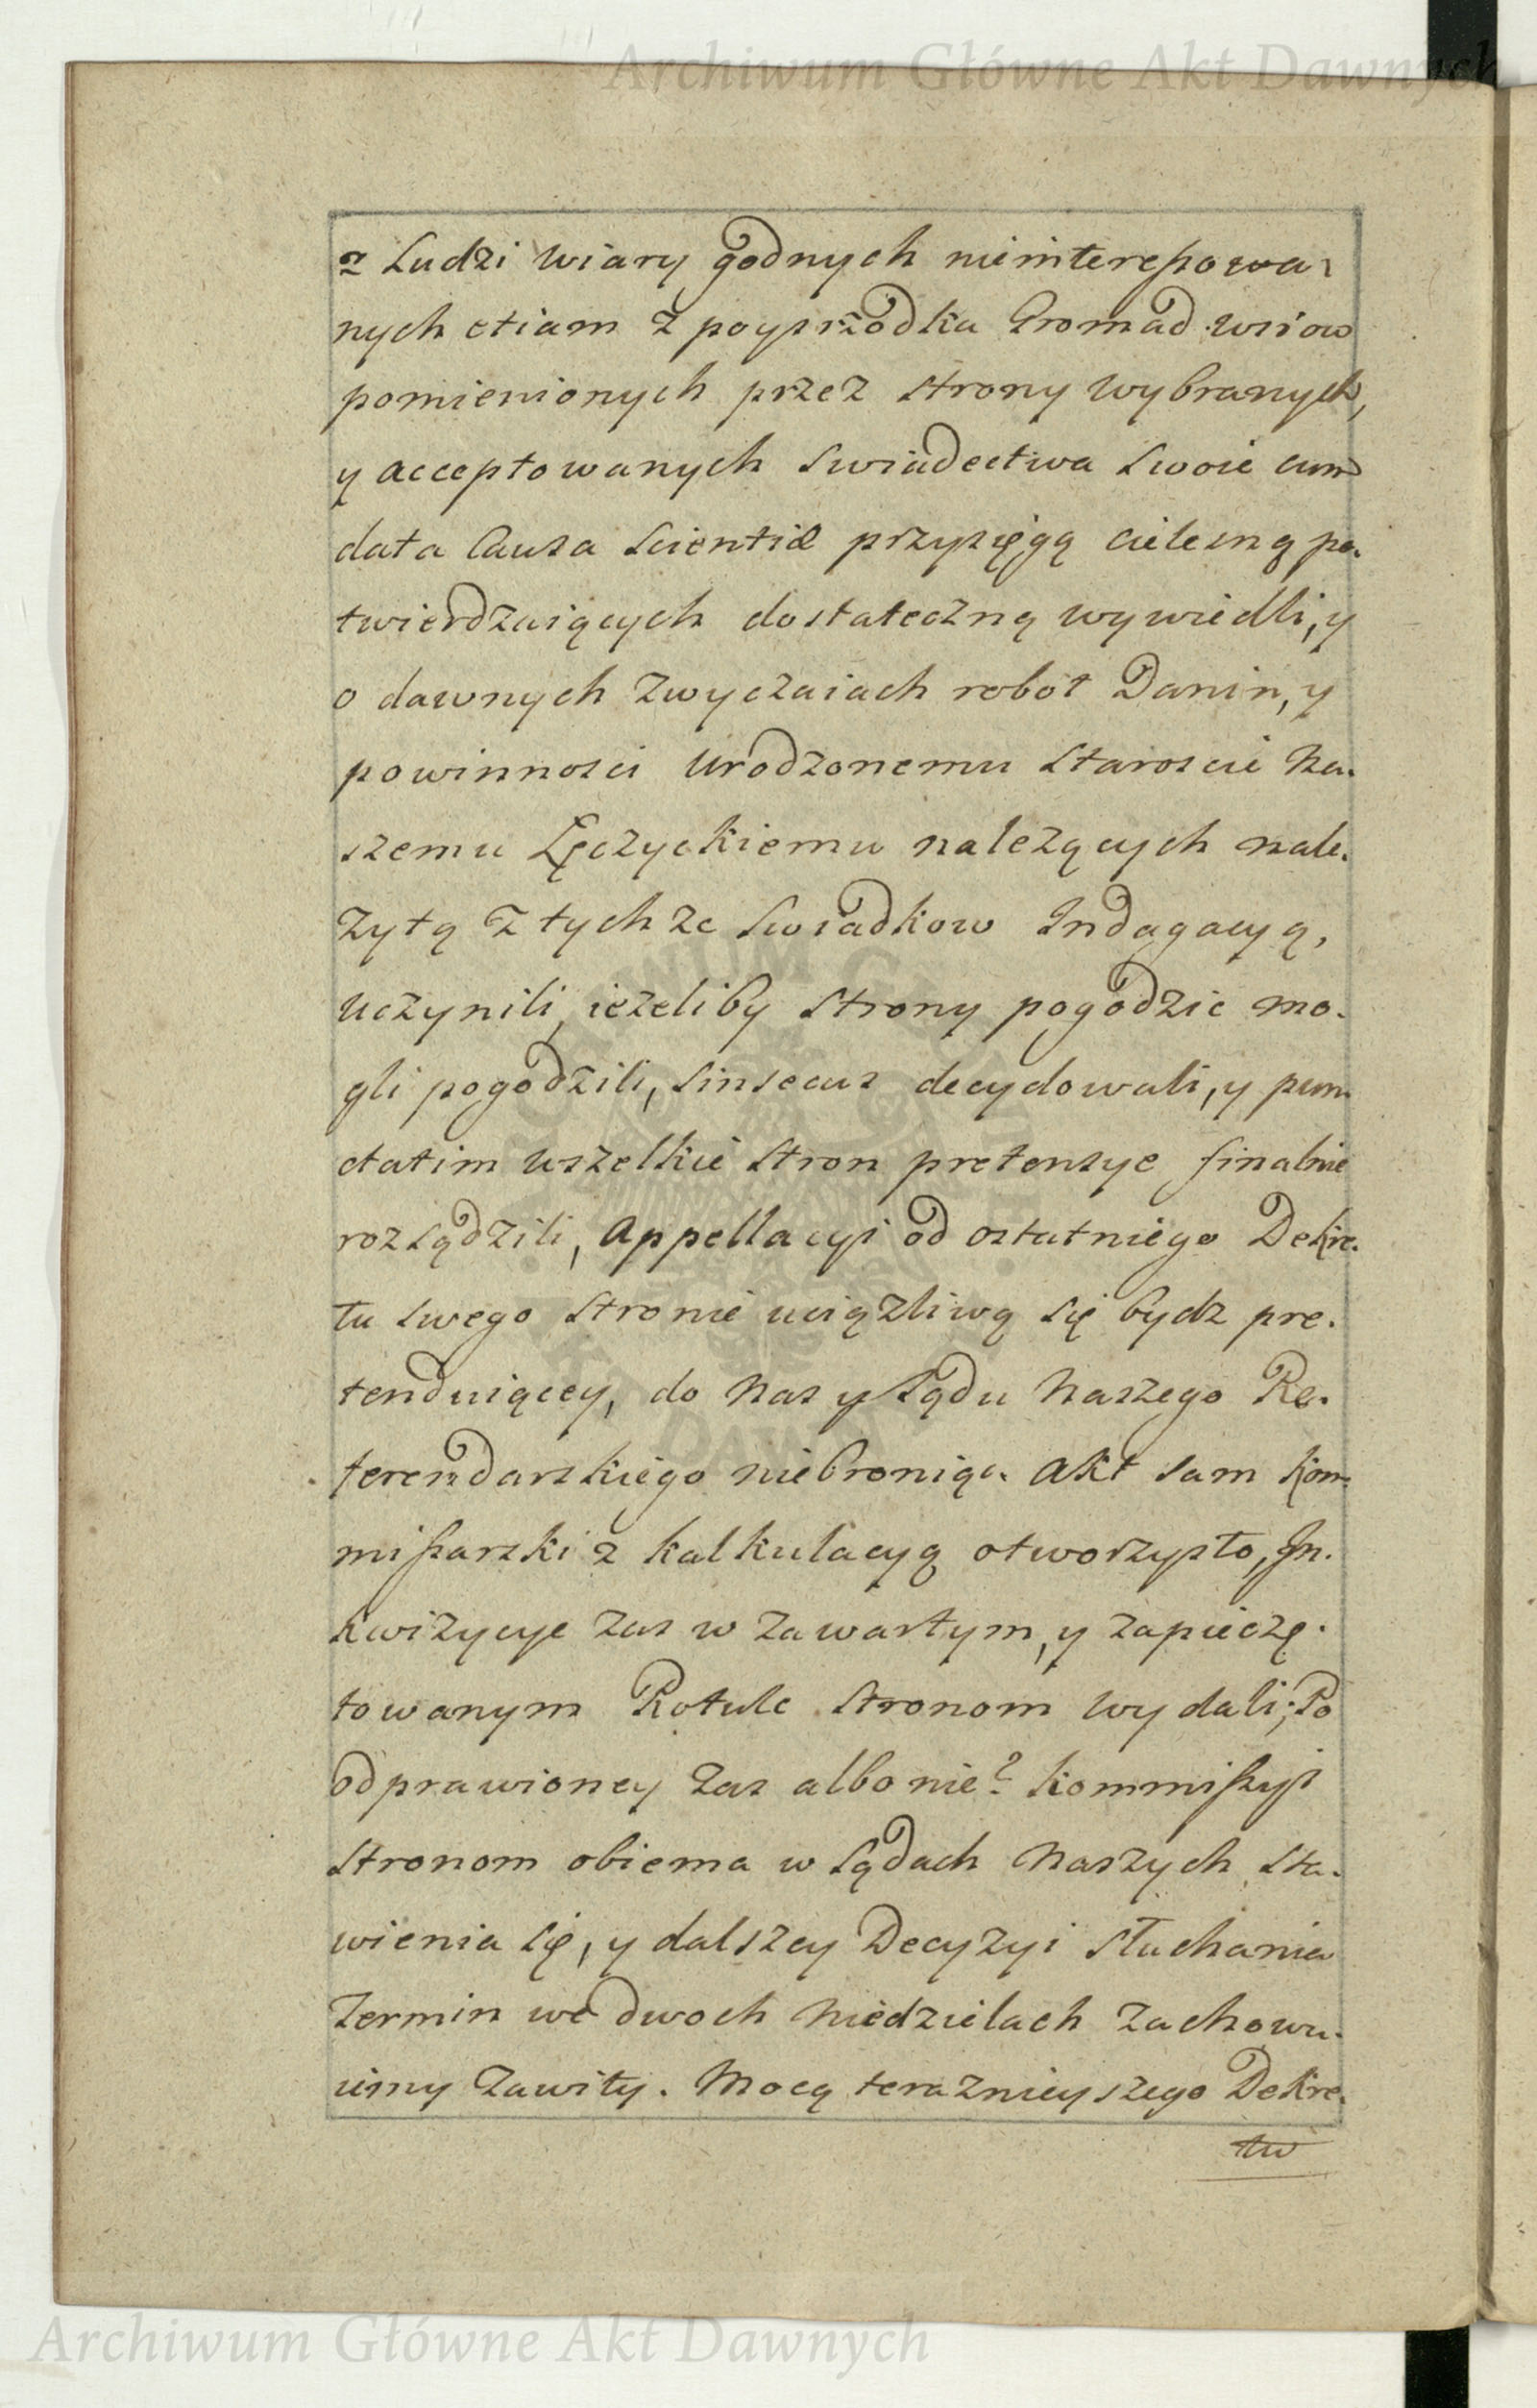 Archiwum Główne Akt Dawnych
z Ludzi wiary godnych nieinteressowa-
nych etiam z poyszrzodka Gromad wsiow
pomienionych przez strony wybranych,
y acceptowanych swiadectwa swoie cum
data Causa Scientiæ przysięgą cielesną po-
twierdzaiących dostateczną wywiedli, y
o dawnych zwyczaiach robot Danin, y
powinnosci Urodzonemu Staroscie Na-
szemu Łęczyckiemu nalezących nale-
zytą z tychze swiadkow Indagacyą,
uczynili, iezeliby strony pogodzic mo-
gli pogodzili, sinsecus decydowali, y pun-
ctatim wszelkie stron pretensye finalnie
rozsądzili, Appellacyi od ostatniego Dekre-
tu swego stronie uciązliwą się bydz pre-
tenduiącey, do Nas y Sądu Naszego Re-
ferendarskiego niebroniąc. Akt sam Kom-
missarski z kalkulacyą otworzysto, In-
kwizycye zas w zawartym, y zapieczę-
towanym Rotule stronom wydali; Po
odprawioney zas albo nie? Kommissyi
stronom obiema w Sądach Naszych sta-
wienia się, y dalszey Decyzyi słuchania
Termin we dwoch Niedzielach zachowu-
iemy zawity. Mocą teraznieyszego Dekre-
tu
Archiwum Główne Akt Dawnych